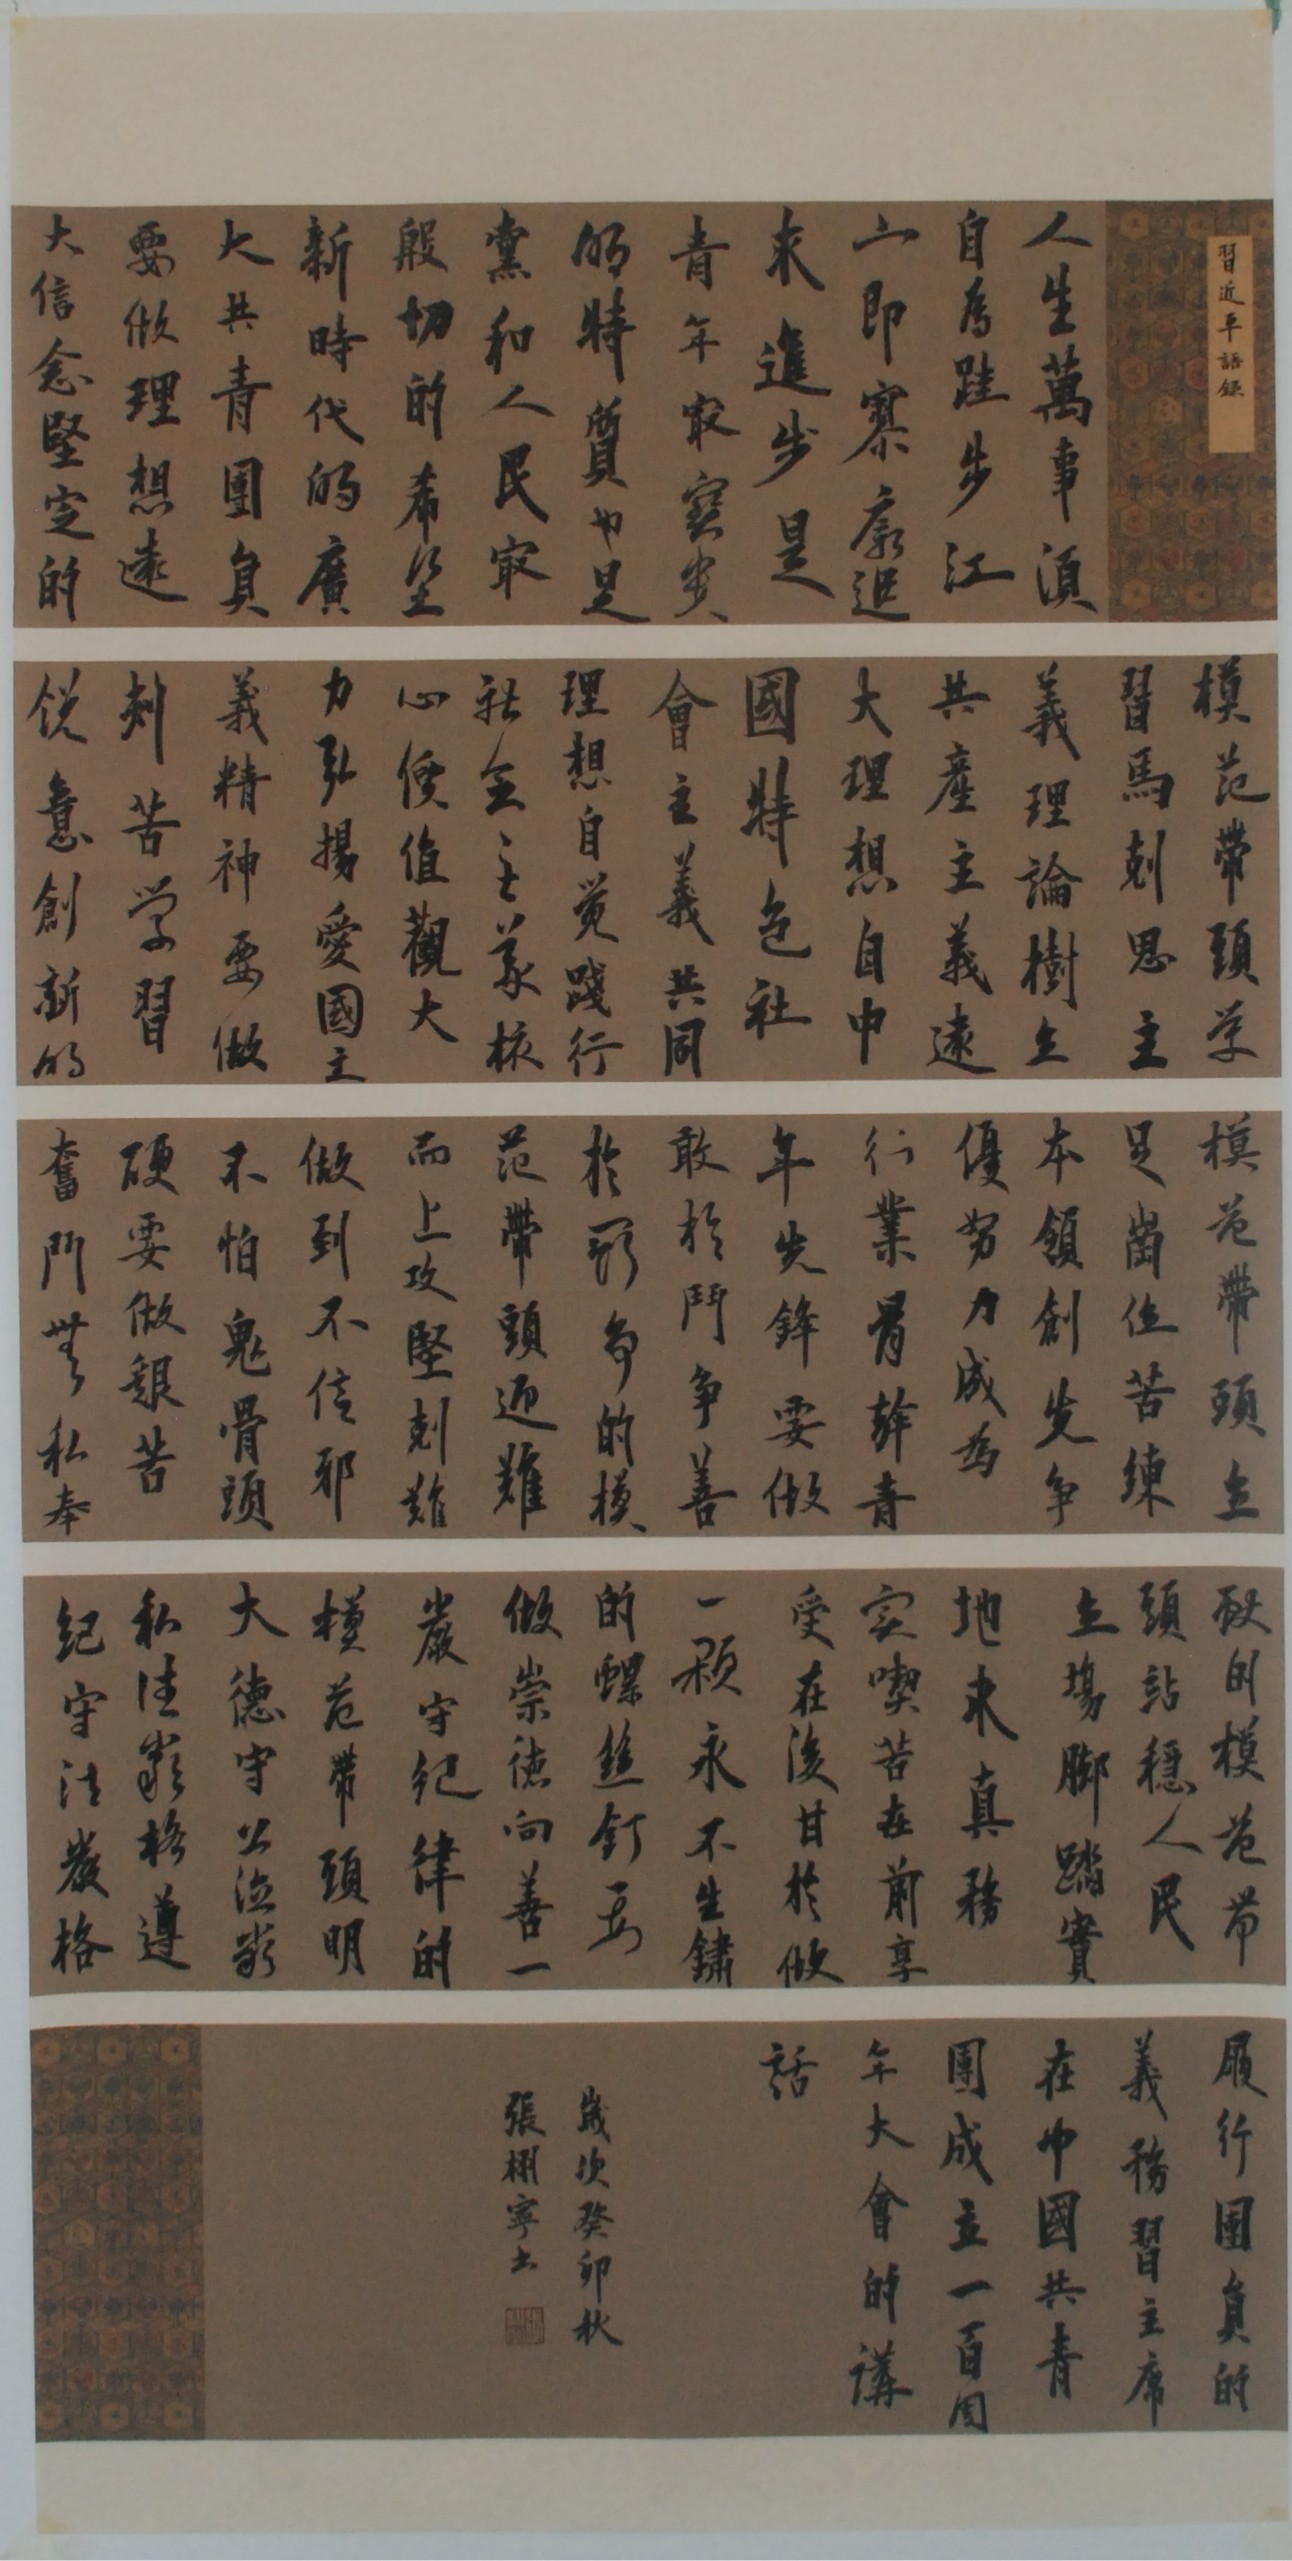 習近平語錄
人生萬事須
自為跬步江
山即寥廓追
求進步是
青年最寶貴
的特質也是
黨和人民最
殷切的希望
新時代的廣
大共青團員
要做理想遠
大信念堅定的
模范帶頭学
習馬剋思主
義理論樹立
共產主義遠
大理想自中
國特色社
會主義共同
理想自覚踐行
社会主義核
心價值觀大
力弘揚愛國主
義精神要做
刻苦学習
銳意創新的
模范帶頭立
足崗位苦練
本領創先争
優努力成為
行業骨幹青
年先鋒要做
敢於鬥争善
於鬥争的模
范帶頭迎難
而上攻堅剋難
做到不信邪
不怕鬼骨頭
硬要做艱苦
奮鬥無私奉
献的模范带
頭站穩人民
立場脚踏實
地求真務
实喫苦在前享
受在後甘於做
一顆永不生鏽
的螺丝釘要
做崇德向善一
嚴守紀律的
模范帶頭明
大德守公德嚴
私德嚴格遵
紀守法嚴格
履行團員的
義務習主席
在中國共青
團成立一百周
年大會的講
話
歲次癸卯秋
張栩寧书